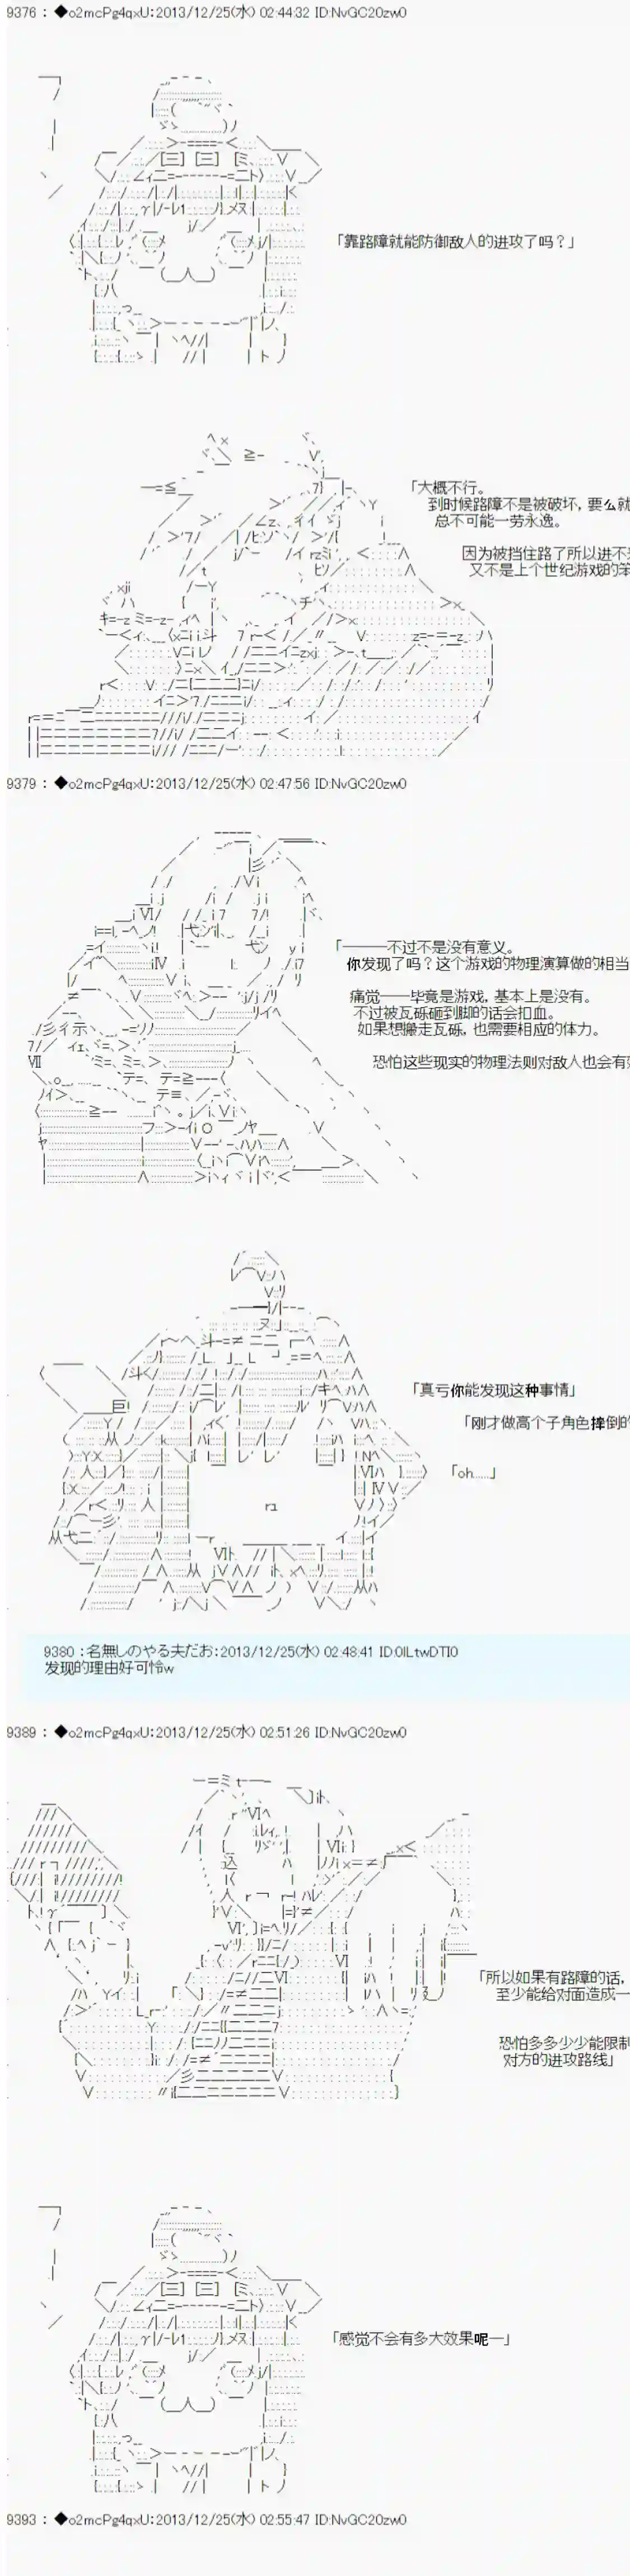 9376 : ◆o2mcPg4qxU:2013/12/25(水) 02:44:32 ID:NvGC20zw0
「靠路障就能防御敌人的进攻了吗？」
「大概不行。
到时候路障不是被破坏，要么就
总不可能一劳永逸。
因为被挡住路了所以进不
又不是上个世纪游戏的笨
9379 : ◆o2mcPg4qxU:2013/12/25(水) 02:47:56 ID:NvGC20zw0
「———不过不是没有意义。
你发现了吗？这个游戏的物理演算做的相当
痛觉——毕竟是游戏，基本上是没有。
不过被瓦砾砸到脚的话会扣血。
如果想搬走瓦砾，也需要相应的体力。
恐怕这些现实的物理法则对敌人也会有
「真亏你能发现这种事情」
「刚才做高个子角色摔倒的
「oh.....」
9380 :名無しのやる夫だお:2013/12/25(水) 02:48:41 ID:0lLtwDTI0
发现的理由好可怜w
9389 : ◆o2mcPg4qxU:2013/12/25(水) 02:51:26 ID:NvGC20zw0
「所以如果有路障的话，
至少能给对面造成一
恐怕多多少少能限制
对方的进攻路线」
「感觉不会有多大效果呢—」
9393 : ◆o2mcPg4qxU:2013/12/25(水) 02:55:47 ID:NvGC20zw0